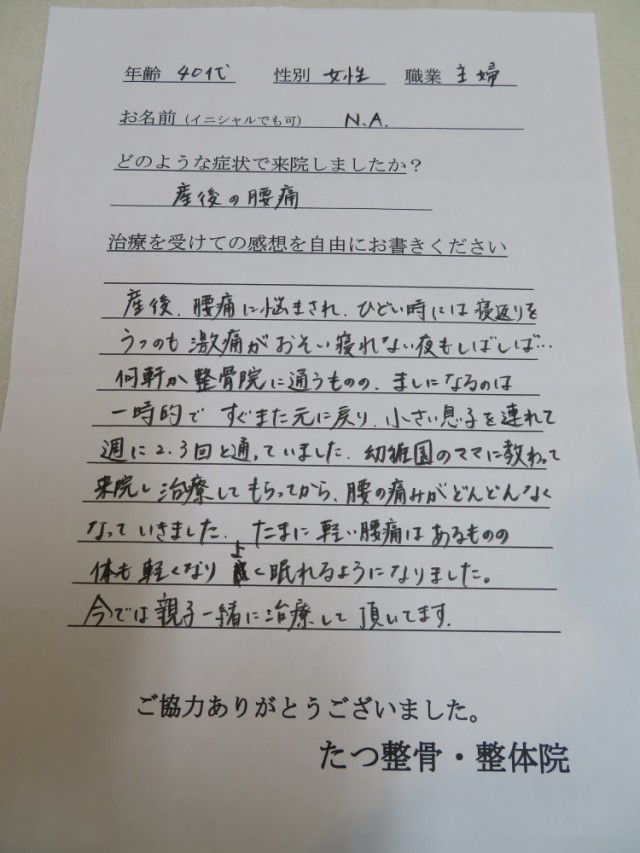 年齢 40代 性別 女性 職業 主婦
お名前（イニシャルでも可） N.A.
どのような症状で来院しましたか？
産後の腰痛
治療を受けての感想を自由にお書きください
産後、腰痛に悩まされ、ひどい時には寝返りを
うつのも激痛がおそい寝れない夜もしばしば…
何軒か整骨院に通うものの、ましになるのは
一時的で すぐまた元に戻り、小さい息子を連れて
週に2.3回と通っていました。幼稚園のママに教わって
来院し治療してもらってから、腰の痛みがどんどんなく
なっていきました。たまに軽い腰痛はあるものの
体も軽くなりよく眠れるようになりました。
今では親子一緒に治療して頂いてます。
ご協力ありがとうございました。
たつ整骨・整体院